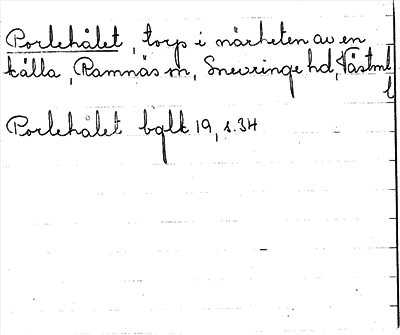 Porlehålet, torp i närheten av en
källa, Ramnäs sn, Snevringe hd, Västml
l
Porlehålet bglk 19, s. 34